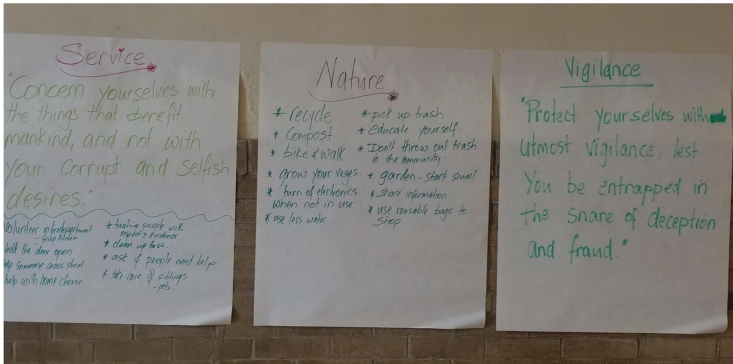 Service
"Concern yourselves with
the things that benefit
mankind, and not with
your Corrupt and selfish
desires."
Volunteer in
hold the door open
help someone cross street
help with home chores
* treating people with
respect & kindness
* clean up
* ask if people need help
* take care of siblings
- pets.
Nature
* recycle
* Compost
* bike & walk
* grow your vegges
* turn of elechonics
when not in use
* use less water
* pick up trash
* educate yourself.
* Don't throw out trash
in the community.
* garden - start small
* share information
* use reusable bags to
shop
Vigilance
"Protect yourselves with
utmost vigilance, lest
You be entrapped in
the snare of deception
and fraud."